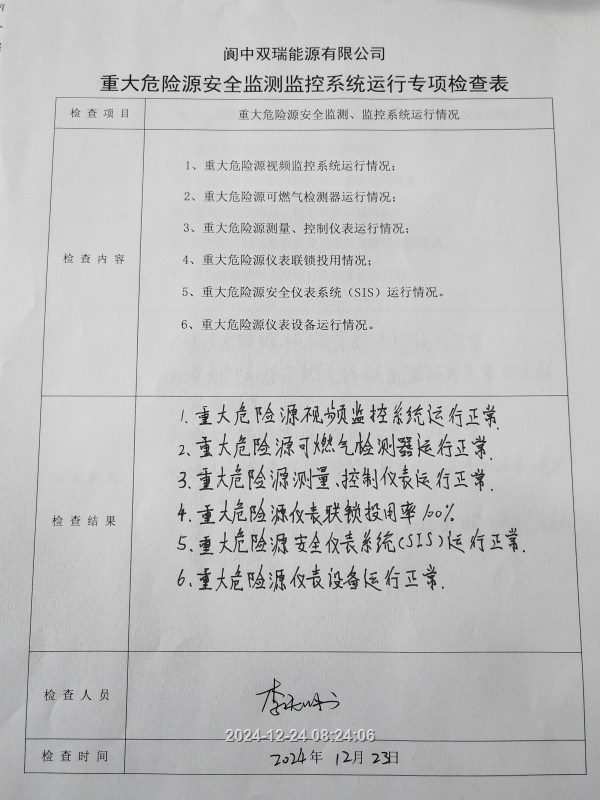 阆中双瑞能源有限公司
重大危险源安全监测监控系统运行专项检查表
检查项目 重大危险源安全监测、监控系统运行情况
检查内容
1、重大危险源视频监控系统运行情况；
2、重大危险源可燃气检测器运行情况；
3、重大危险源测量、控制仪表运行情况；
4、重大危险源仪表联锁投用情况；
5、重大危险源安全仪表系统（SIS）运行情况。
6、重大危险源仪表设备运行情况。
检查结果
1.重大危险源视频监控系统运行正常.
2.重大危险源可燃气检测器运行正常.
3.重大危险源测量、控制仪表运行正常.
4.重大危险源仪表联锁投用率100%
5.重大危险源安全仪表系统(SIS)运行正常.
6.重大危险源仪表设备运行正常.
检查人员
2024-12-24 08:24:06
检查时间 2024年12月23日